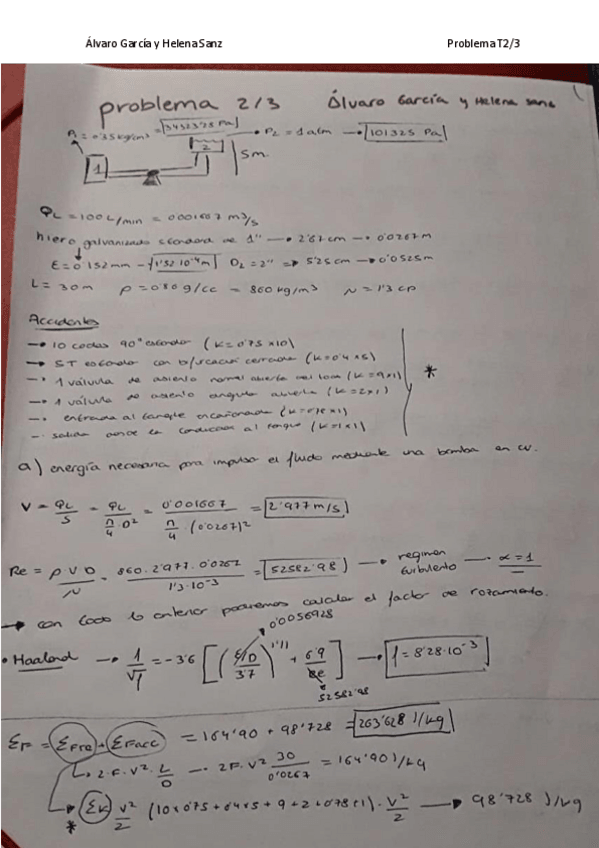 Álvaro García y Helena Sanz Problema T2/3
problema 2/3 Álvaro García y Helena Sanz
P₂ = 1 atm → 101325 Pa
1 2 5m.
QL = 100 L/min = 0'001667 m³/s
hierro galvanizado standard de 1" → 2'67 cm → 0'0267 m
E = 0'152 mm → 1'52·10⁻⁴ m D₂ = 2" => 5'25 cm → 0'0525 m
L = 30 m ρ = 0'86 g/cc = 860 kg/m³ μ = 1'3 cp
Accidentes
→ 10 codos 90° estandar (K = 0'75 x 10)
→ 5 T estandar con bifurcación cerrada (K = 0'4 x 5)
→ 1 válvula de asiento normal abierta (K = 9x1)
→ 1 válvula de asiento angular abierta (K = 2x1)
→ entrada al tanque encañonada (K = 0'78 x 1)
→ salida desde la conducción al tanque (K = 1x1)
*
a) energía necesaria para impulsar el fluido mediante una bomba en cv.
V = QL/S = QL/(π/4 · D²) = 0'001667/(π/4 · (0'0267)²) = 2'977 m/s
Re = ρVD/μ = 860 · 2'977 · 0'0267/1'3·10⁻³ = 52582'98 → regimen turbulento → α = 1
→ con todo lo anterior podremos calcular el factor de rozamiento.
0'0056928
• Haaland → 1/√f = -3'6 [(E/D/3'7)^1'11 + 6'9/Re] → f = 8'28·10⁻³
52582'98
ΣF = ΣFre + ΣFacc = 164'90 + 98'728 = 263'628 J/kg
↳ 2·F·V²·L/D → 2F·V² 30/0'0267 = 164'90 J/kg
* ΣK V²/2 (10x0'75 + 0'4x5 + 9 + 2 + 0'78 + 1) · V²/2 → 98'728 J/kg